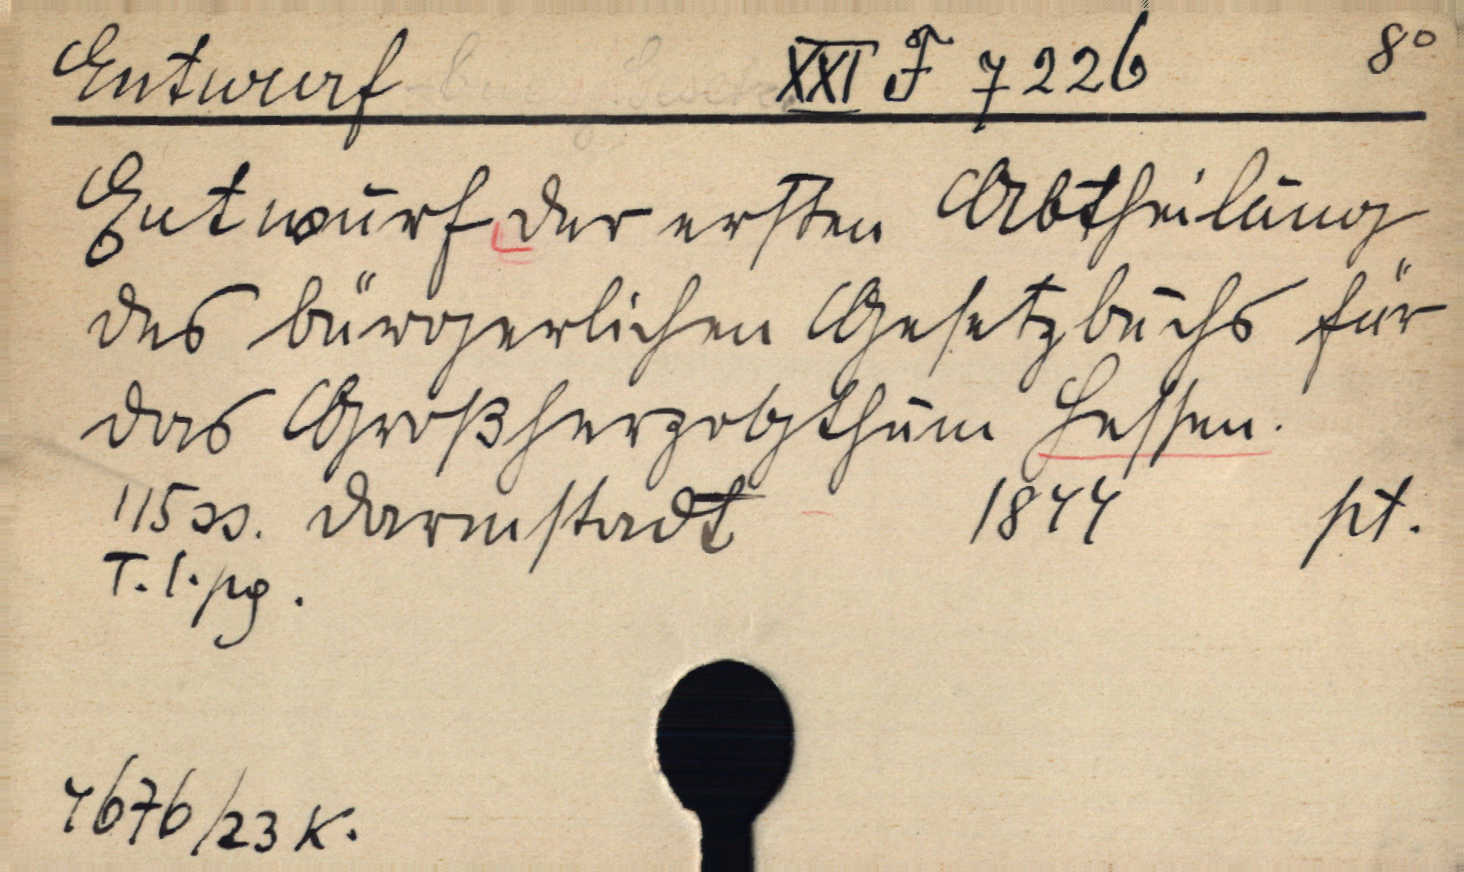 Entwurf XXI F 7226 8°
Entwurf der ersten Abtheilung
des bürgerlichen Gesetzbuchs für
das Großherzogthum Hessen.
115 ss. Darmstadt 1844 pt.
T. l. pg.
4676/23 K.